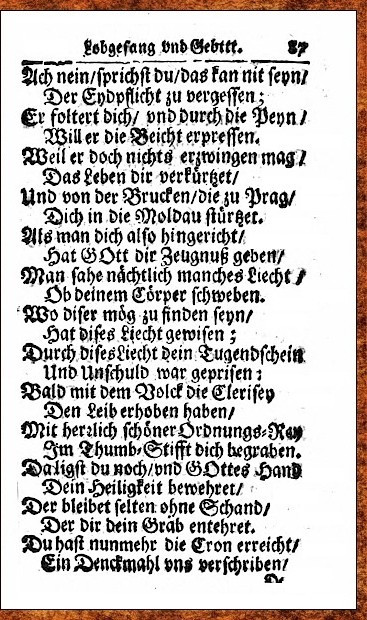 Lobgesang vnd Gebett. 87
Ach nein/sprichst du/das kan nit seyn/
Der Eydpflicht zu vergessen;
Er foltert dich/ vnd durch die Peyn/
Will er die Beicht erpressen.
Weil er doch nichts erzwingen mag/
Das Leben dir verkürtzet/
Und von der Brucken/die zu Prag/
Dich in die Moldau stürtzet.
Als man dich also hingericht/
Hat GOtt dir Zeugnuß geben/
Man sahe nächtlich manches Liecht/
Ob deinem Cörper schweben.
Wo diser mög zu finden seyn/
Hat dises Liecht gewisen;
Durch dises Liecht dein Tugendschein
Und Unschuld war geprisen:
Bald mit dem Volck die Clerisey
Den Leib erhoben haben/
Mit herzlich schöner Ordnungs-Rey
Im Thumb-Stifft dich begraben.
Da ligst du noch/vnd GOttes Hand
Dein Heiligkeit bewehret/
Der bleibet selten ohne Schand/
Der dir dein Grab entehret.
Du hast nunmehr die Cron erreicht/
Ein Denckmahl vns verschriben/